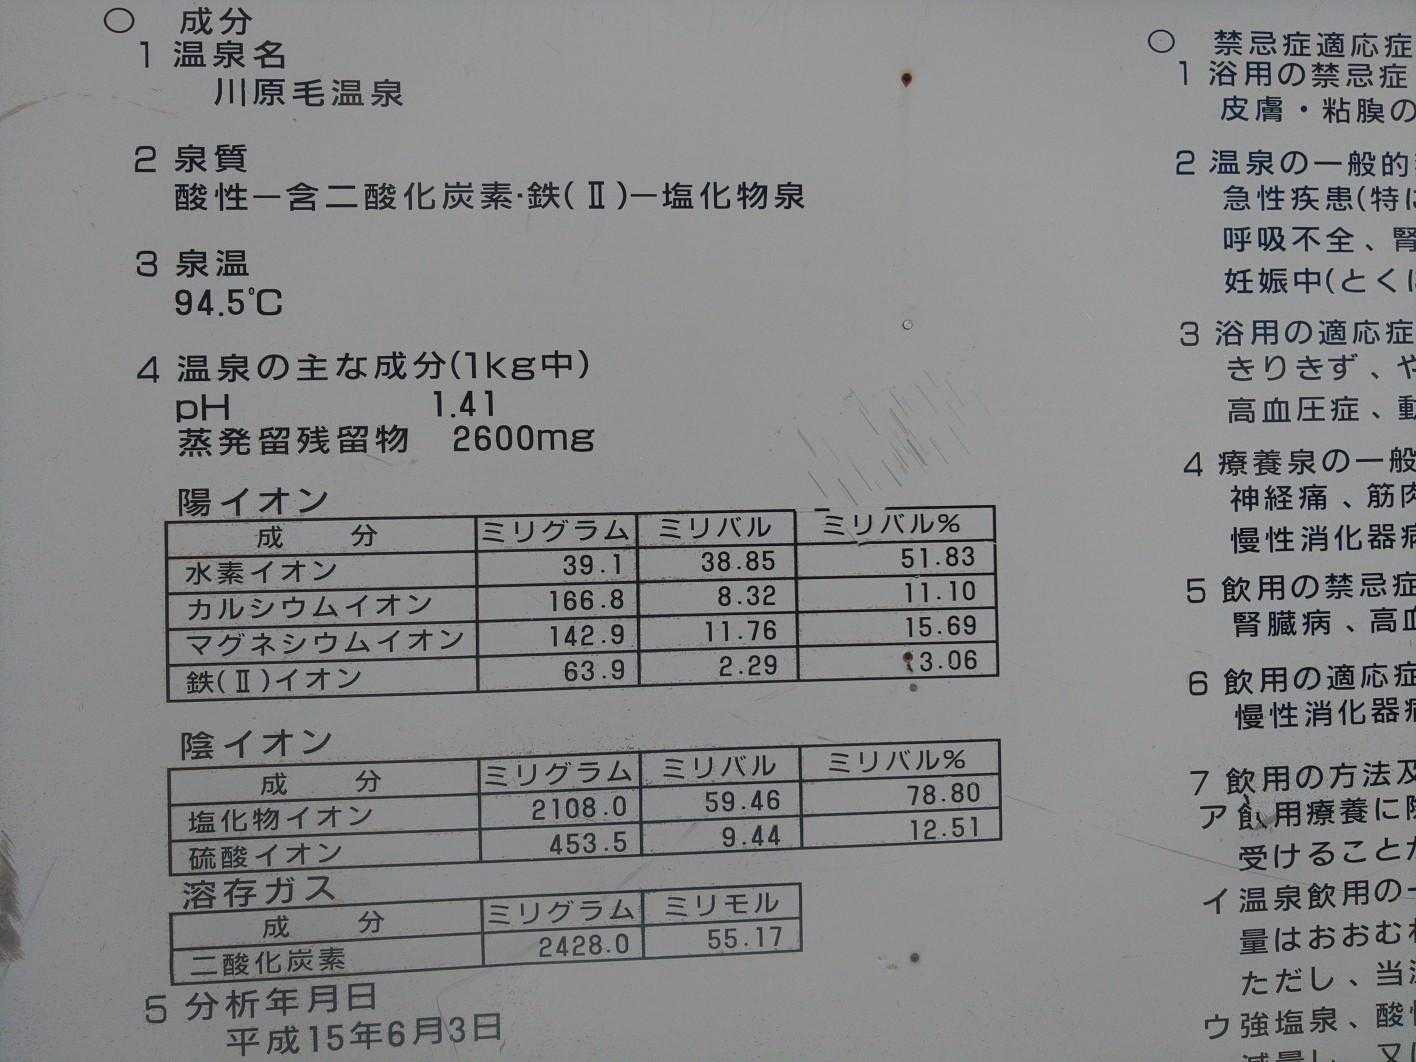 ○ 成分
1 温泉名
川原毛温泉
2 泉質
酸性ー含二酸化炭素・鉄(Ⅱ)ー塩化物泉
3 泉温
94.5℃
4 温泉の主な成分(1kg中)
pH 1.41
蒸発留残留物 2600mg
陽イオン
成 分 ミリグラム ミリバル ミリバル%
水素イオン 39.1 38.85 51.83
カルシウムイオン 166.8 8.32 11.10
マグネシウムイオン 142.9 11.76 15.69
鉄(Ⅱ)イオン 63.9 2.29 3.06
陰イオン
成 分 ミリグラム ミリバル ミリバル%
塩化物イオン 2108.0 59.46 78.80
硫酸イオン 453.5 9.44 12.51
溶存ガス
成 分 ミリグラム ミリモル
二酸化炭素 2428.0 55.17
5 分析年月日
平成15年6月3日
○ 禁忌症適応症
1 浴用の禁忌症
皮膚・粘膜の
2 温泉の一般的
急性疾患(特に
呼吸不全、腎
妊娠中(とくに
3 浴用の適応症
きりきず、や
高血圧症、動
4 療養泉の一般
神経痛、筋肉
慢性消化器病
5 飲用の禁忌症
腎臓病、高血
6 飲用の適応症
慢性消化器病
7 飲用の方法及
ア 飲用療養に際
受けることが
イ 温泉飲用の一
量はおおむね
ただし、当温
ウ 強塩泉、酸性
減量し、又は